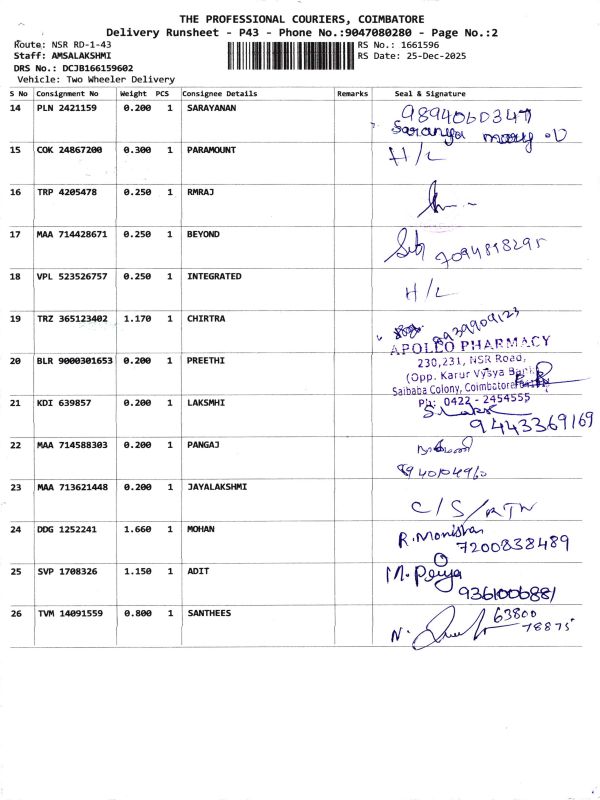 THE PROFESSIONAL COURIERS, COIMBATORE
Delivery Runsheet - P43 - Phone No.:9047080280 - Page No.:2
Route: NSR RD-1-43 RS No.: 1661596
Staff: AMSALAKSHMI RS Date: 25-Dec-2025
DRS No.: DCJB166159602
Vehicle: Two Wheeler Delivery
S No Consignment No Weight PCS Consignee Details Remarks Seal & Signature
14 PLN 2421159 0.200 1 SARAYANAN 9894060347
Saranya
15 COK 24867200 0.300 1 PARAMOUNT H/L
16 TRP 4205478 0.250 1 RMRAJ
17 MAA 714428671 0.250 1 BEYOND 7094818295
18 VPL 523526757 0.250 1 INTEGRATED H/L
19 TRZ 365123402 1.170 1 CHIRTRA 9939909123
APOLLO PHARMACY
230,231, NSR Road,
20 BLR 9000301653 0.200 1 PREETHI (Opp. Karur Vysya Bank)
Saibaba Colony, Coimbatore
Ph: 0422 - 2454555
21 KDI 639857 0.200 1 LAKSMHI
9443369169
22 MAA 714588303 0.200 1 PANGAJ
23 MAA 713621448 0.200 1 JAYALAKSHMI C/S/RTN
24 DDG 1252241 1.660 1 MOHAN R. Monisha
7200838489
25 SVP 1708326 1.150 1 ADIT M. Periya
9361006881
26 TVM 14091559 0.800 1 SANTHEES N. 63800
78875